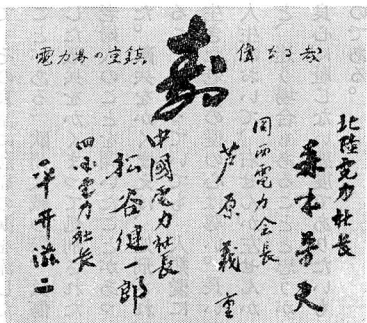 電力界の重鎮
寿
偉なる哉
北陸電力社長
森本芳夫
関西電力会長
芦原義重
中國電力社長
松谷健一郎
四国電力社長
平井滋二